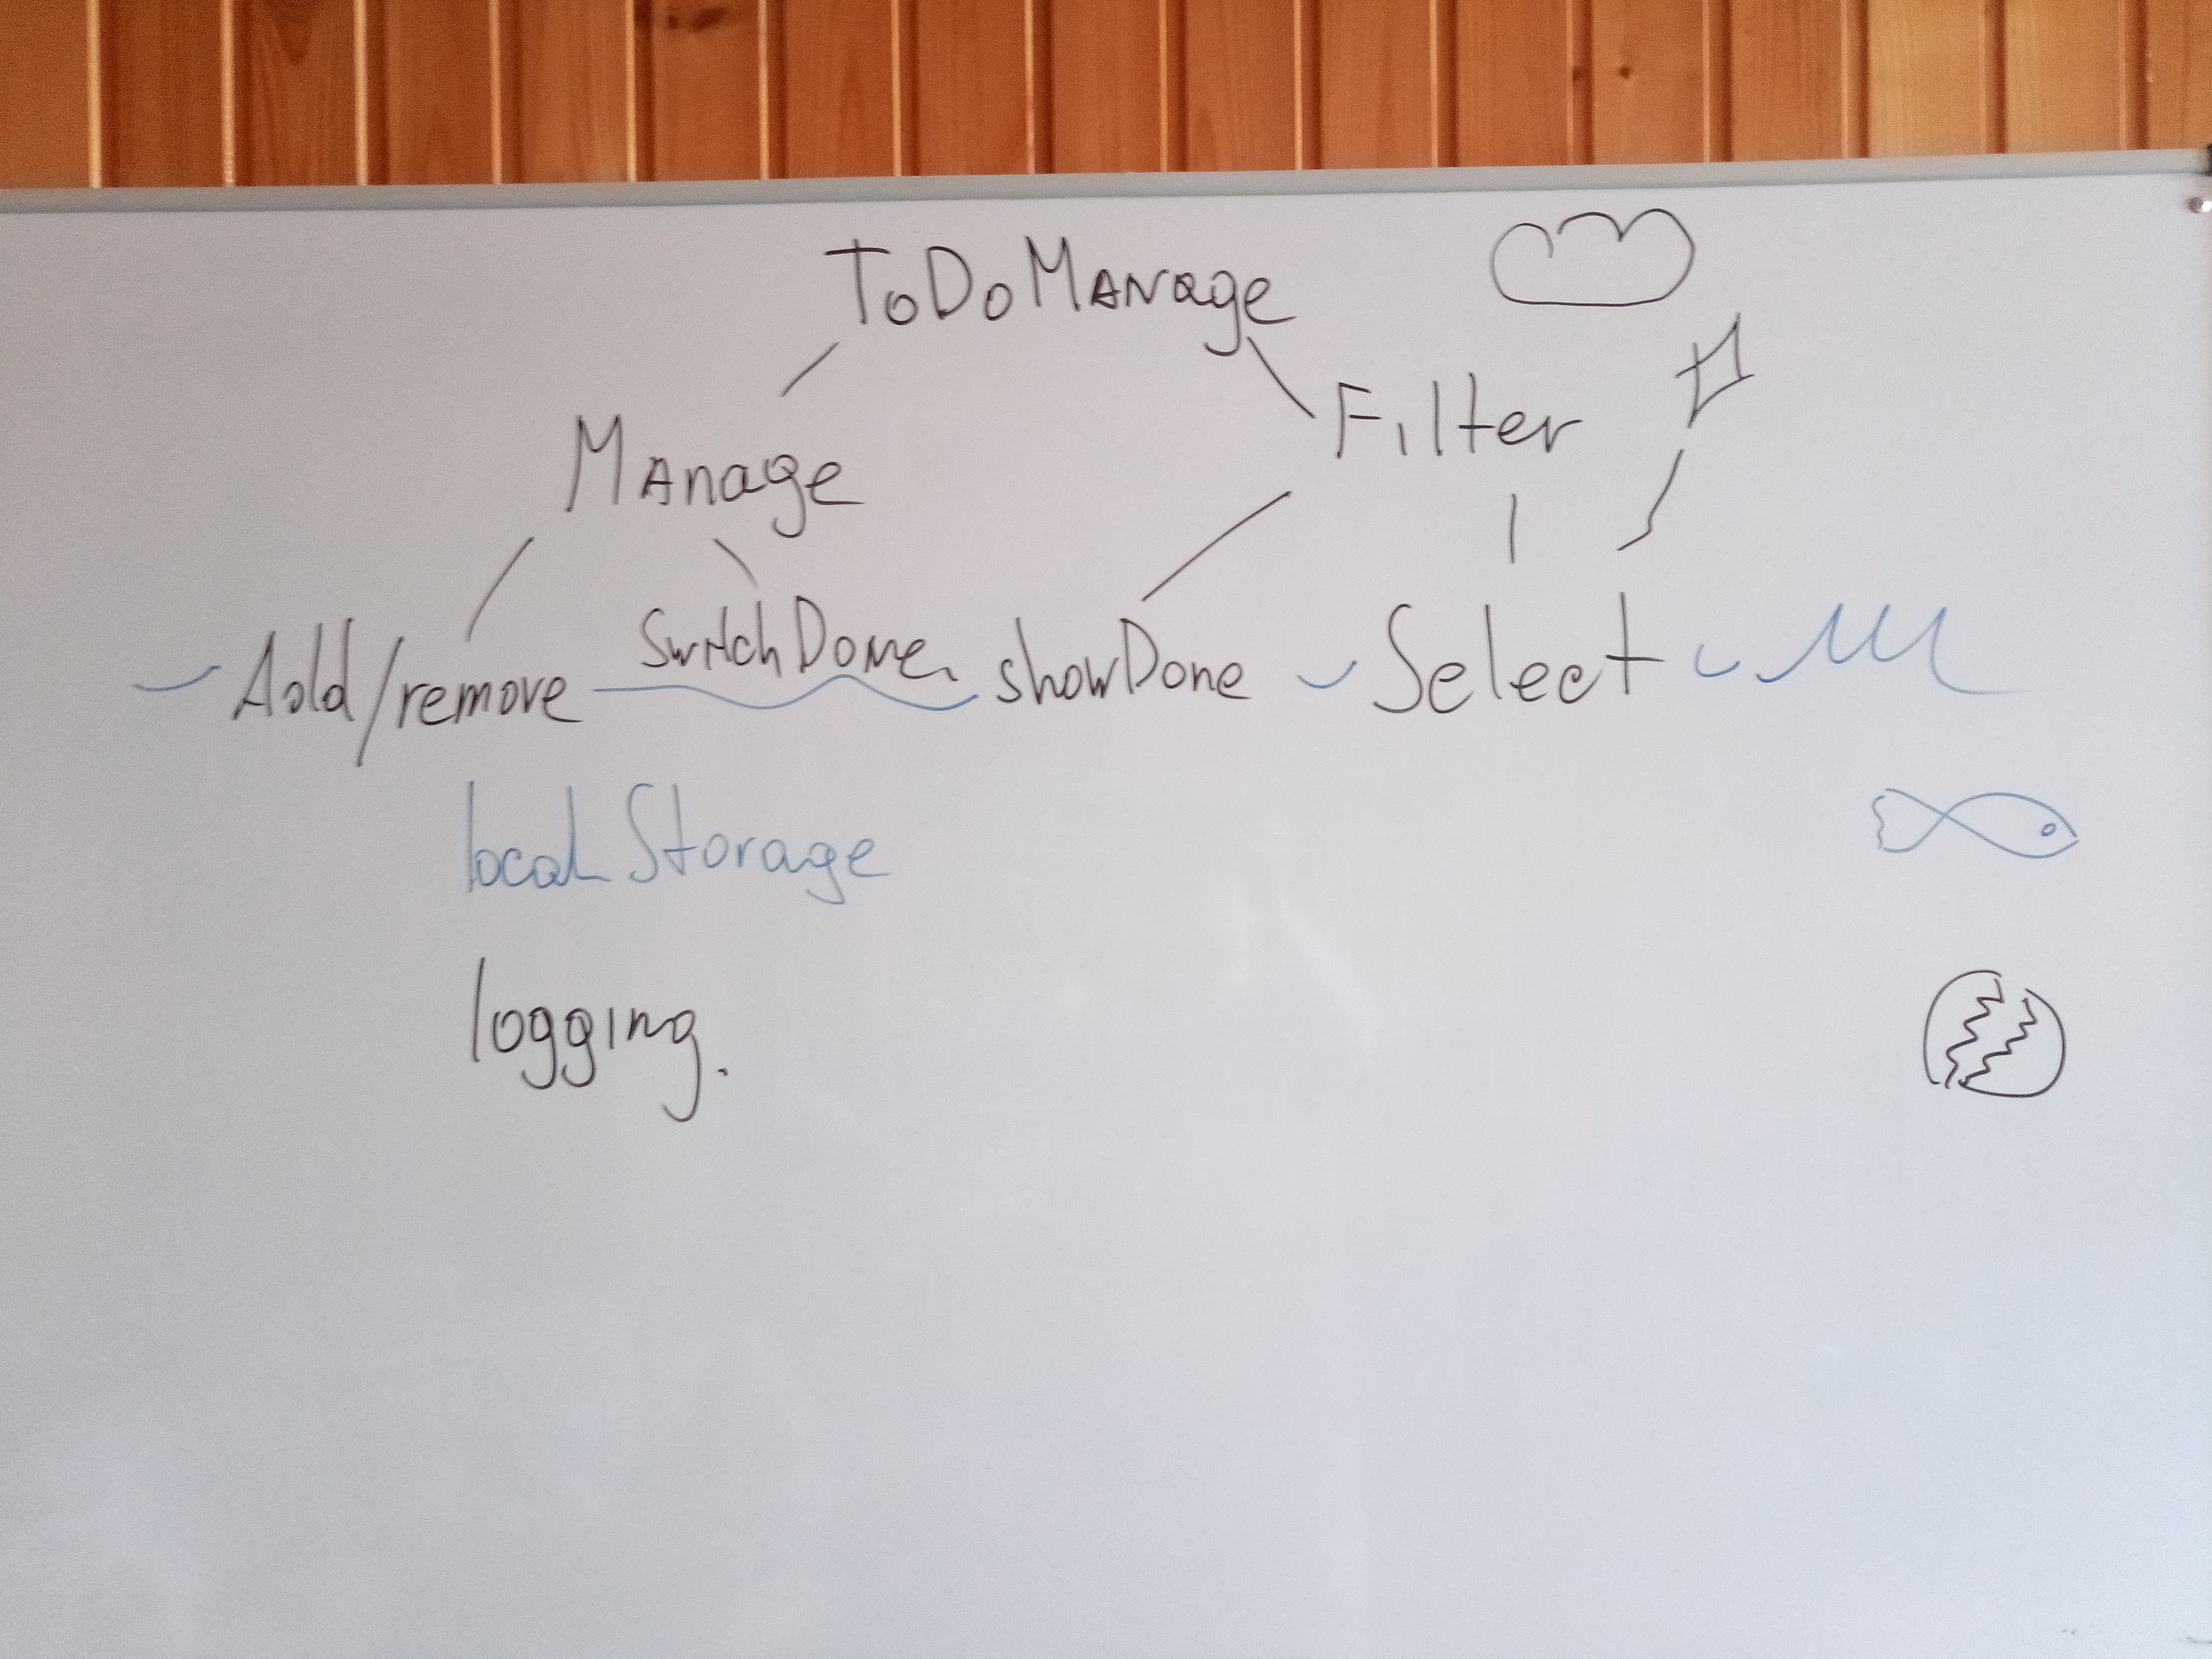 ToDoManage
Manage Filter
Add/remove SwitchDone showDone Select
localStorage
logging.